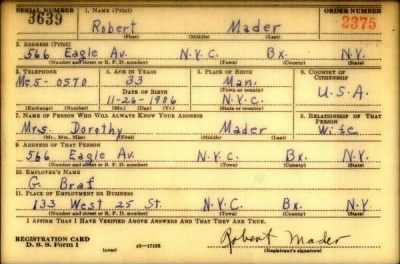 SERIAL NUMBER 1. NAME (Print) ORDER NUMBER
3639 Robert Mader 2375
(First) (Middle) (Last)
2. ADDRESS (Print)
566 Eagle Av. N.Y.C. Bx. N.Y.
(Number and street or R. F. D. number) (Town) (County) (State)
3. TELEPHONE 4. AGE IN YEARS 5. PLACE OF BIRTH 6. COUNTRY OF CITIZENSHIP
Me5-0570 33 Man.
DATE OF BIRTH (Town or county)
11-26-1906 N.Y.C. U.S.A.
(Exchange) (Number) (Mo.) (Day) (Yr.) (State or country)
7. NAME OF PERSON WHO WILL ALWAYS KNOW YOUR ADDRESS 8. RELATIONSHIP OF THAT PERSON
Mrs. Dorothy Mader Wife
(Mr., Mrs., Miss) (First) (Middle) (Last)
9. ADDRESS OF THAT PERSON
566 Eagle Av. N.Y.C. Bx. N.Y.
(Number and street or R. F. D. number) (Town) (County) (State)
10. EMPLOYER'S NAME
G. Braf
11. PLACE OF EMPLOYMENT OR BUSINESS
133 West 25 St. N.Y.C. N.Y.
(Number and street or R. F. D. number) (Town) (County) (State)
I AFFIRM THAT I HAVE VERIFIED ABOVE ANSWERS AND THAT THEY ARE TRUE.
REGISTRATION CARD
D. S. S. Form 1 (over) Robert Mader
(Registrant's signature)